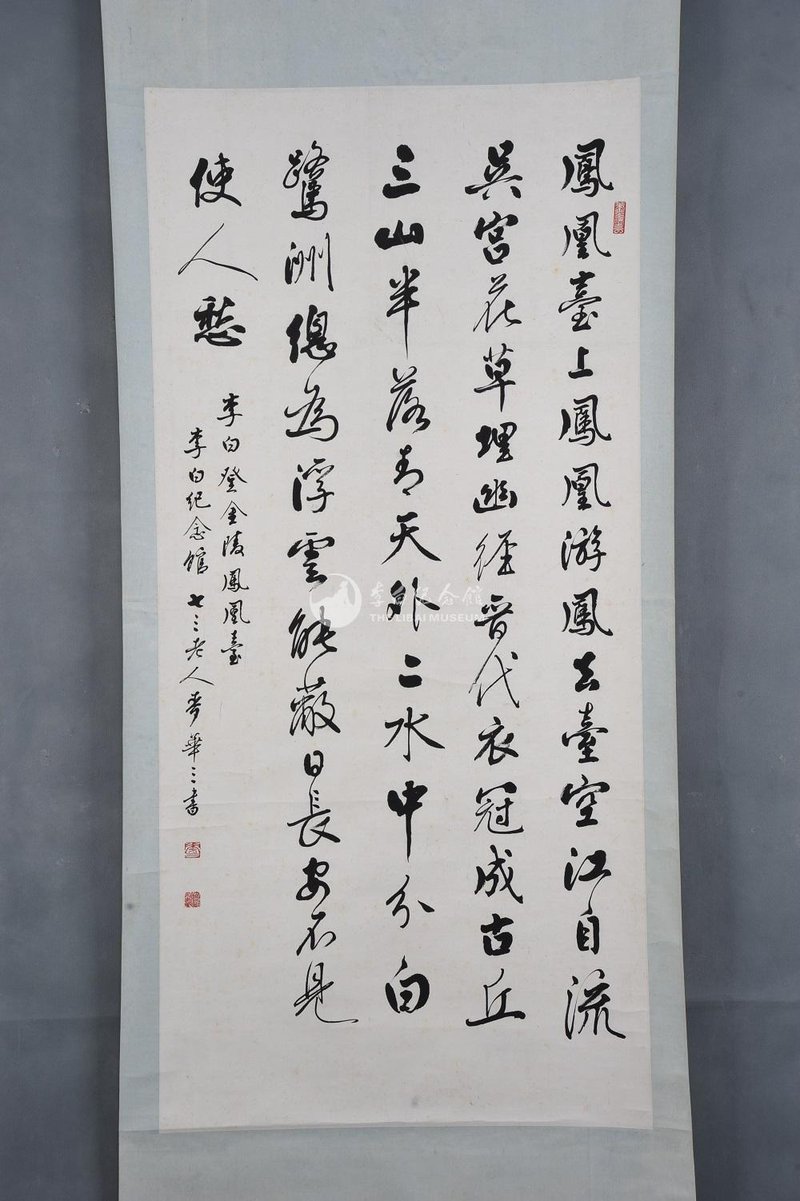 鳳凰臺上鳳凰游鳳去臺空江自流
吳宮花草埋幽徑晉代衣冠成古丘
三山半落青天外二水中分白
鷺洲總為浮雲能蔽日長安不見
使人愁
李白登金陵鳳凰臺
李白紀念館 七三老人麥華三書
李白紀念館
THE LIBAI MUSEUM